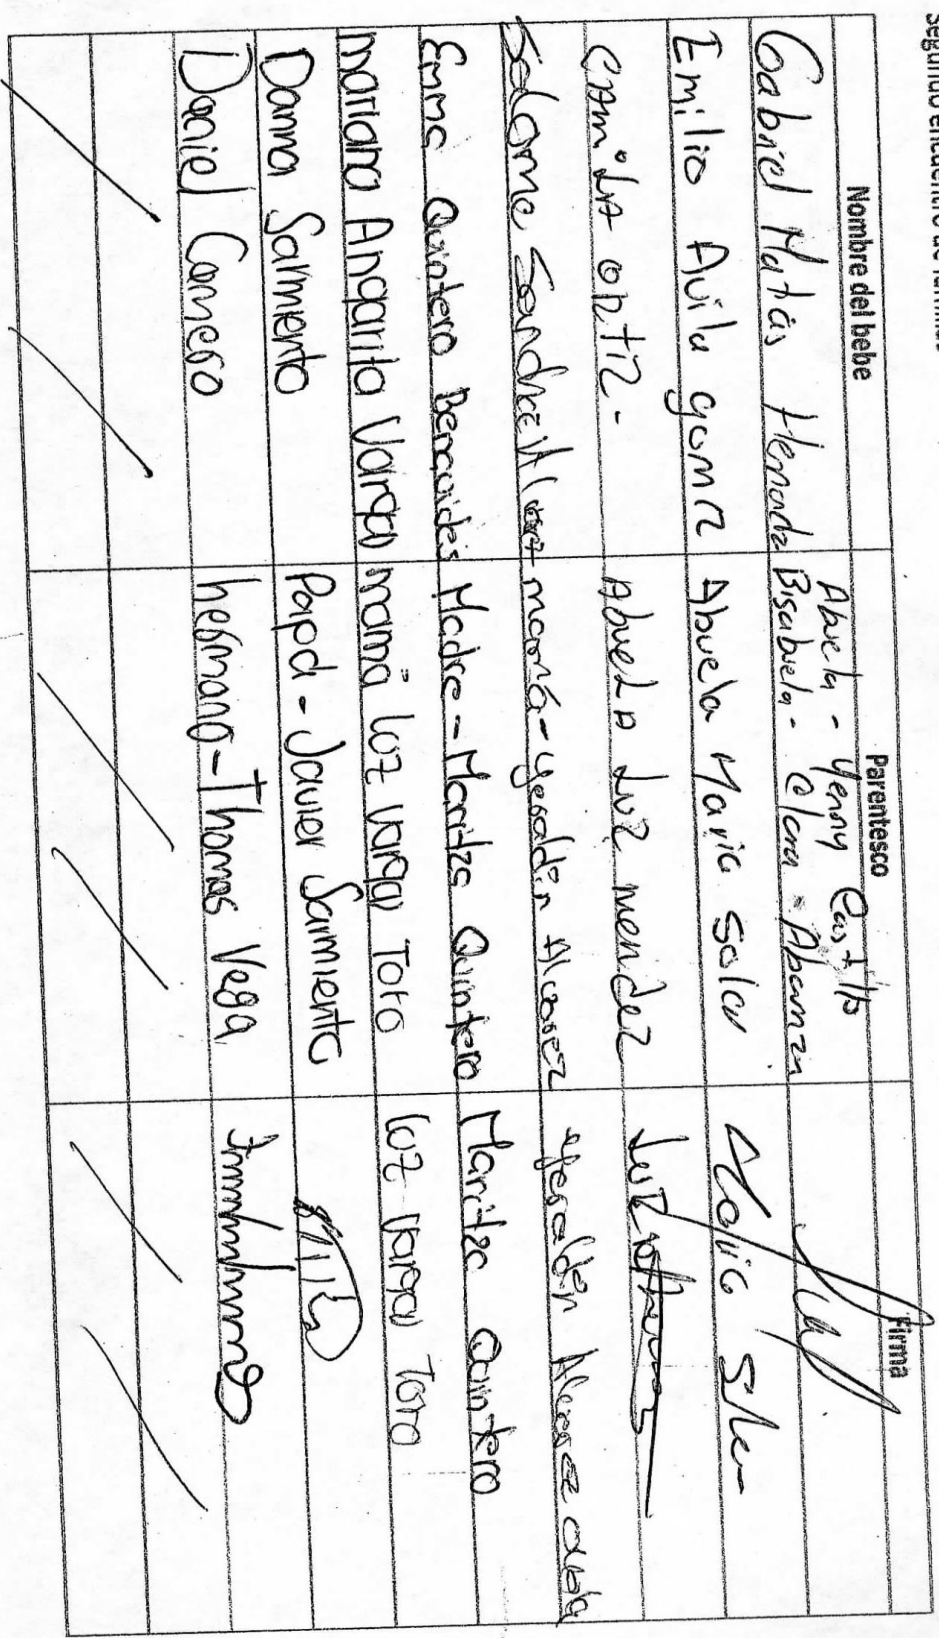 Segundo encuentro de familias
Nombre del bebe Parentesco Firma
Abuela - Yenny Castillo
Gabriel Matías Bisabuela - Clara Abaunza
Emilio Avila gomez Abuela Maria Soler
CAMiLA ORTiZ - AbueLA LuZ mendez
Salome Sandoval mamá - yeraldin Alvarez
Emma Quintero Benavides Madre - Maritza Quintero Maritza Quintero
mariana Angarita Vargas mamá luz vargas Toro luz vargas Toro
Danna Sarmiento Papá - Javier Sarmiento
Daniel Comero hermano - Thomas Vega